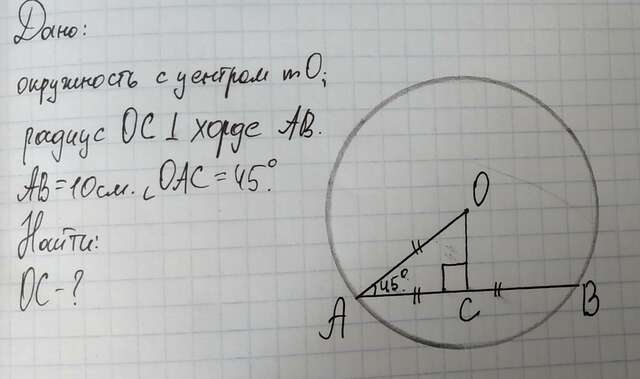 Дано:
окружность с центром т О;
радиус ОС ⊥ хорде АВ.
АВ = 10 см. ∠ОАС = 45°.
Найти:
ОС - ?
О
45°
А
С
В